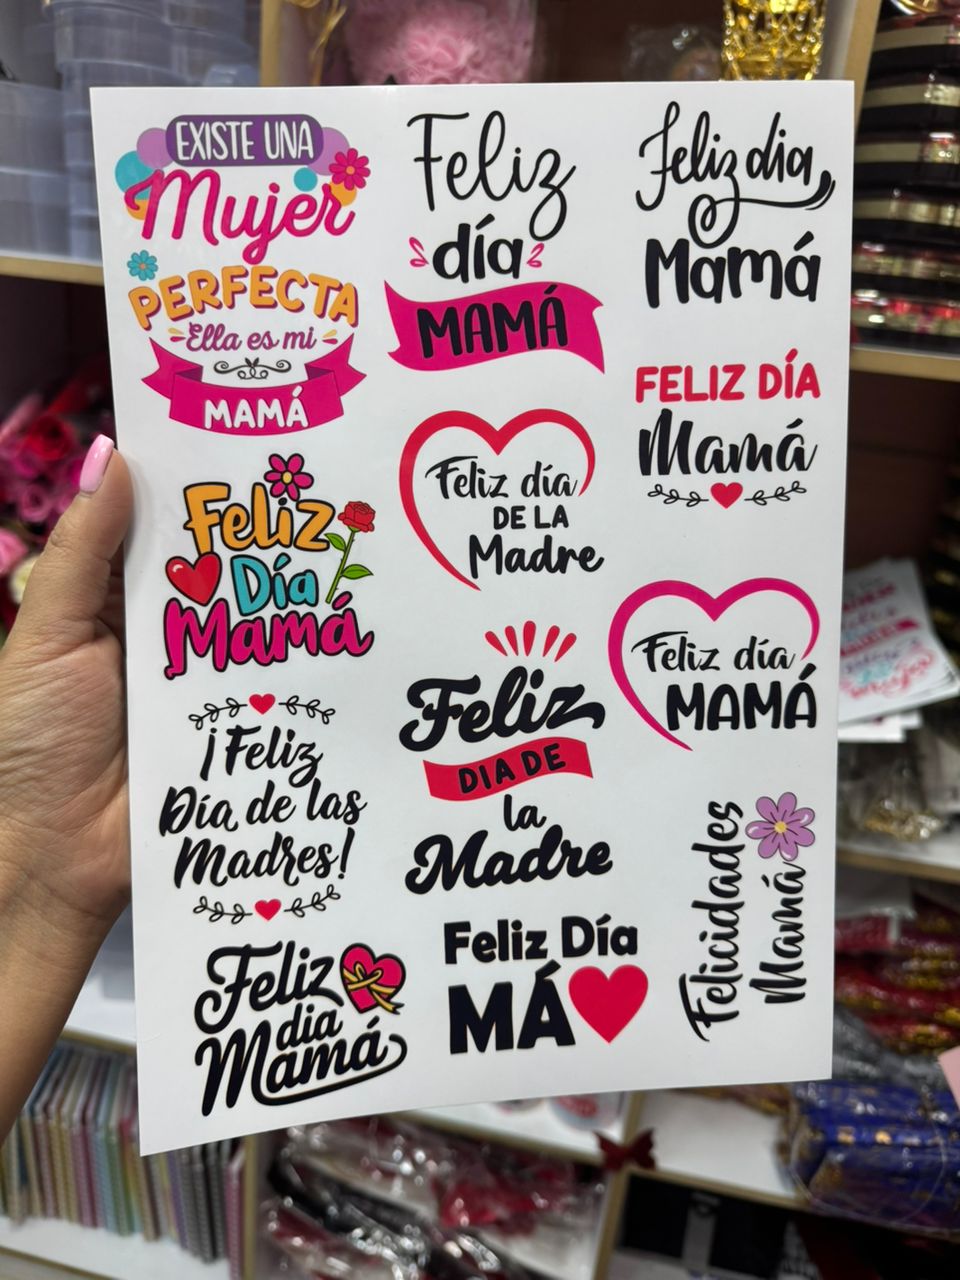 EXISTE UNA
Mujer
PERFECTA
Ella es mi
MAMÁ
Feliz
día
MAMÁ
Feliz dia
Mamá
FELIZ DÍA
Mamá
Feliz
Día
Mamá
Feliz día
DE LA
Madre
Feliz día
MAMÁ
¡Feliz
Día de las
Madres!
Feliz
DIA DE
la
Madre
Felicidades
Mamá
Feliz
dia
Mamá
Feliz Día
MÁ